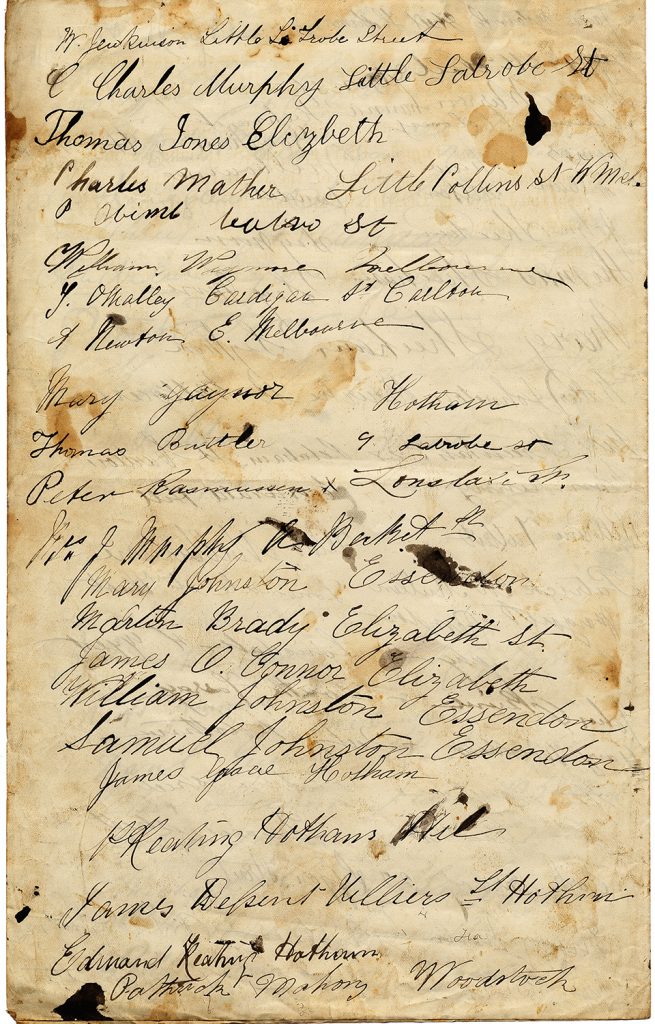 W. Jenkinson Little La Trobe Street
C Charles Murphy Little Latrobe St
Thomas Jones Elizbeth
Charles Mather Little Collins St W Mel.
P St
William Melbourne
J. OMalley Cardigan St Carlton
A Newton E. Melbourne
Mary Gaynor Hotham
Thomas Buttler 9 Latrobe st
Peter Rasmussen x
J Murphy St
Mary Johnston Essendon
Martin Brady Elizabeth St.
James O. Connor Elizabeth
William Johnston Essendon
Samuel Johnston Essendon
James Hotham
P Keating Hotham Hil
James Villiers St Hotham
Edmund Keating Hotham
Pattrick Mahony Woodstock